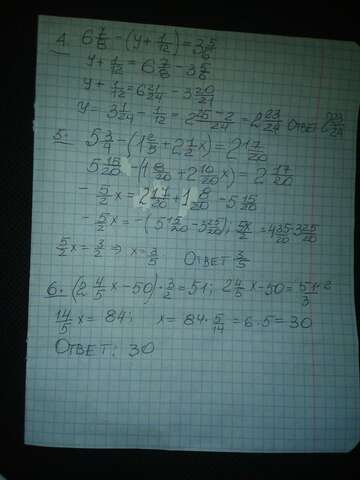 4. 6 7/8 - (y + 1/12) = 3 5/6
y + 1/12 = 6 7/8 - 3 5/6
y + 1/12 = 6 21/24 - 3 20/24
y = 3 1/24 - 1/12 = 2 25-2/24 = 2 23/24 Ответ 2 23/24
5. 5 3/4 - (1 2/5 + 2 1/2 x) = 2 17/20
5 15/20 - (1 8/20 + 2 10/20 x) = 2 17/20
- 5/2 x = 2 17/20 + 1 8/20 - 5 15/20
- 5/2 x = -(5 15/20 - 3 25/20); 5x/2 = 4 35/20 - 3 25/20
5/2 x = 3/2 ⇒ x = 3/5 Ответ 3/5
6. (2 4/5 x - 50) · 3/2 = 51; 2 4/5 x - 50 = 51·2/3
14/5 x = 84; x = 84 · 5/14 = 6·5 = 30
Ответ: 30